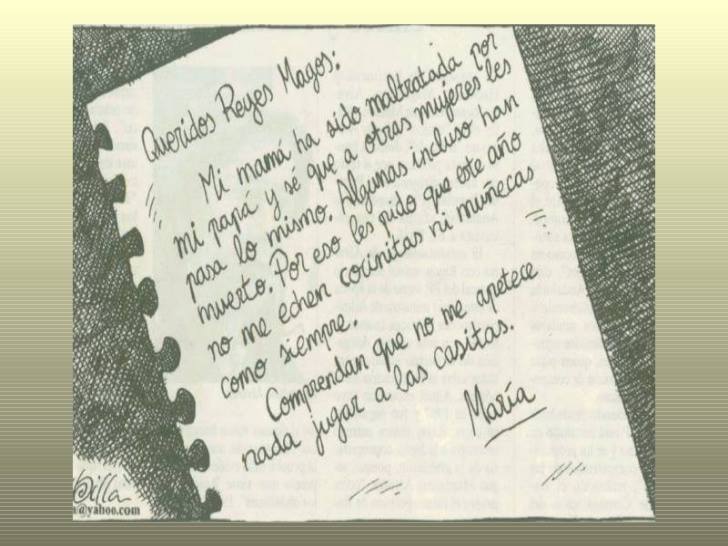 Queridos Reyes Magos:
Mi mamá ha sido maltratada por
mi papá y sé que a otras mujeres les
pasa lo mismo. Algunas incluso han
muerto. Por eso les pido que este año
no me echen cocinitas ni muñecas
como siempre.
Comprendan que no me apetece
nada jugar a las casitas.
María
@yahoo.com